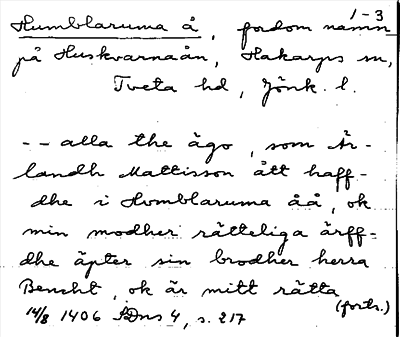 1-3
Humblaruma å, fordom namn
på Huskvarnaån, Hakarps sn,
Tveta hd, Jönk. l.
-- alla the ägo, som Är-
landh Mattisson ått haff-
dhe i Homblaruma åå, ok
min modher rätteliga ärff-
dhe äpter sin brodher herra
Bencht, ok är mitt rätta
(forts.)
14/8 1406 SDns 4, s. 217